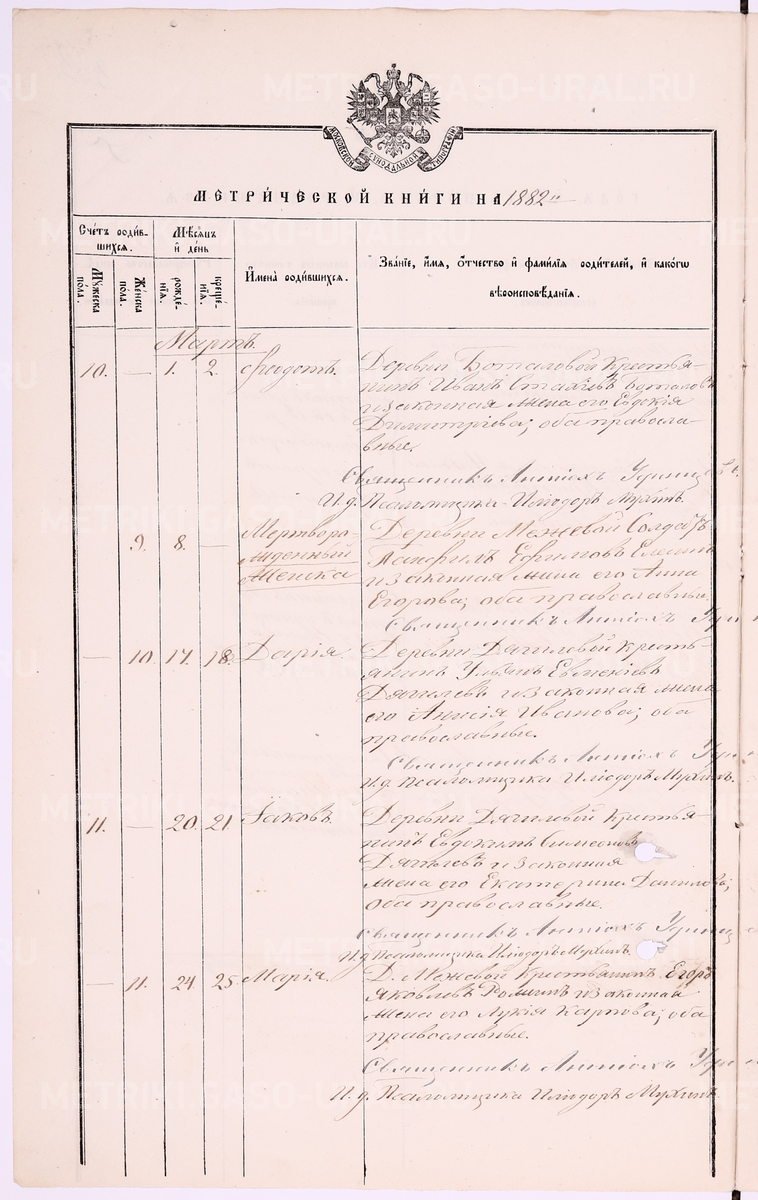 МОСКОВСКОЙ СѴНОДАЛЬНОЙ ТИПОГРАФІИ
МЕТРИ́ЧЕСКОЙ КНИ́ГИ НА 1882 г.
Сче́тъ роди́вшихся.
Мꙋжеска по́ла.
Же́нска по́ла.
Мѣ́сѧцъ и҆ де́нь
рожде́нїѧ.
креще́нїѧ.
И҆мена̀ роди́вшихсѧ.
Зва́нїе, и҆́мѧ, ѻ҆́тчество и҆ фами́лїѧ роди́телей, и҆ како́гѡ
вѣроисповѣ́данїѧ.
Мартъ.
10. — 1. 2. Ѳеодотъ. Деревни Боталовой крестья-
нинъ Иванъ Боталовъ
и законная жена его Евдокія
Димитріева; оба правосла-
вные.
Священникъ Антіохъ
И. д. Псаломщика Иліодоръ Мухинъ.
9. 8. — Мертворо-
жденный
Женска
Деревни Межевой Солдатъ
Панфилъ Ефимовъ
и законная жена его Анна
Егорова; оба православные.
Священникъ Антіохъ
— 10. 17. 18. Дарія. Деревни Дягилевой кресть-
янинъ Ульянъ Евменіевъ
Дягилевъ и законная жена
его Анисія Иванова; оба
православные.
Священникъ Антіохъ
И. д. Псаломщика Иліодоръ Мухинъ.
11. — 20. 21. Іаковъ. Деревни Дягилевой крестья-
нинъ Евдокимъ Симеоновъ
Дягилевъ и законная
жена его Екатерина Данилова;
оба православные.
Священникъ Антіохъ
И. д. Псаломщика Иліодоръ Мухинъ.
— 11. 24. 25. Марія. Д. Межевой крестьянинъ Егоръ
Яковлевъ Роминъ и законная
жена его Лукія Карпова; оба
православные.
Священникъ Антіохъ
И. д. Псаломщика Иліодоръ Мухинъ.